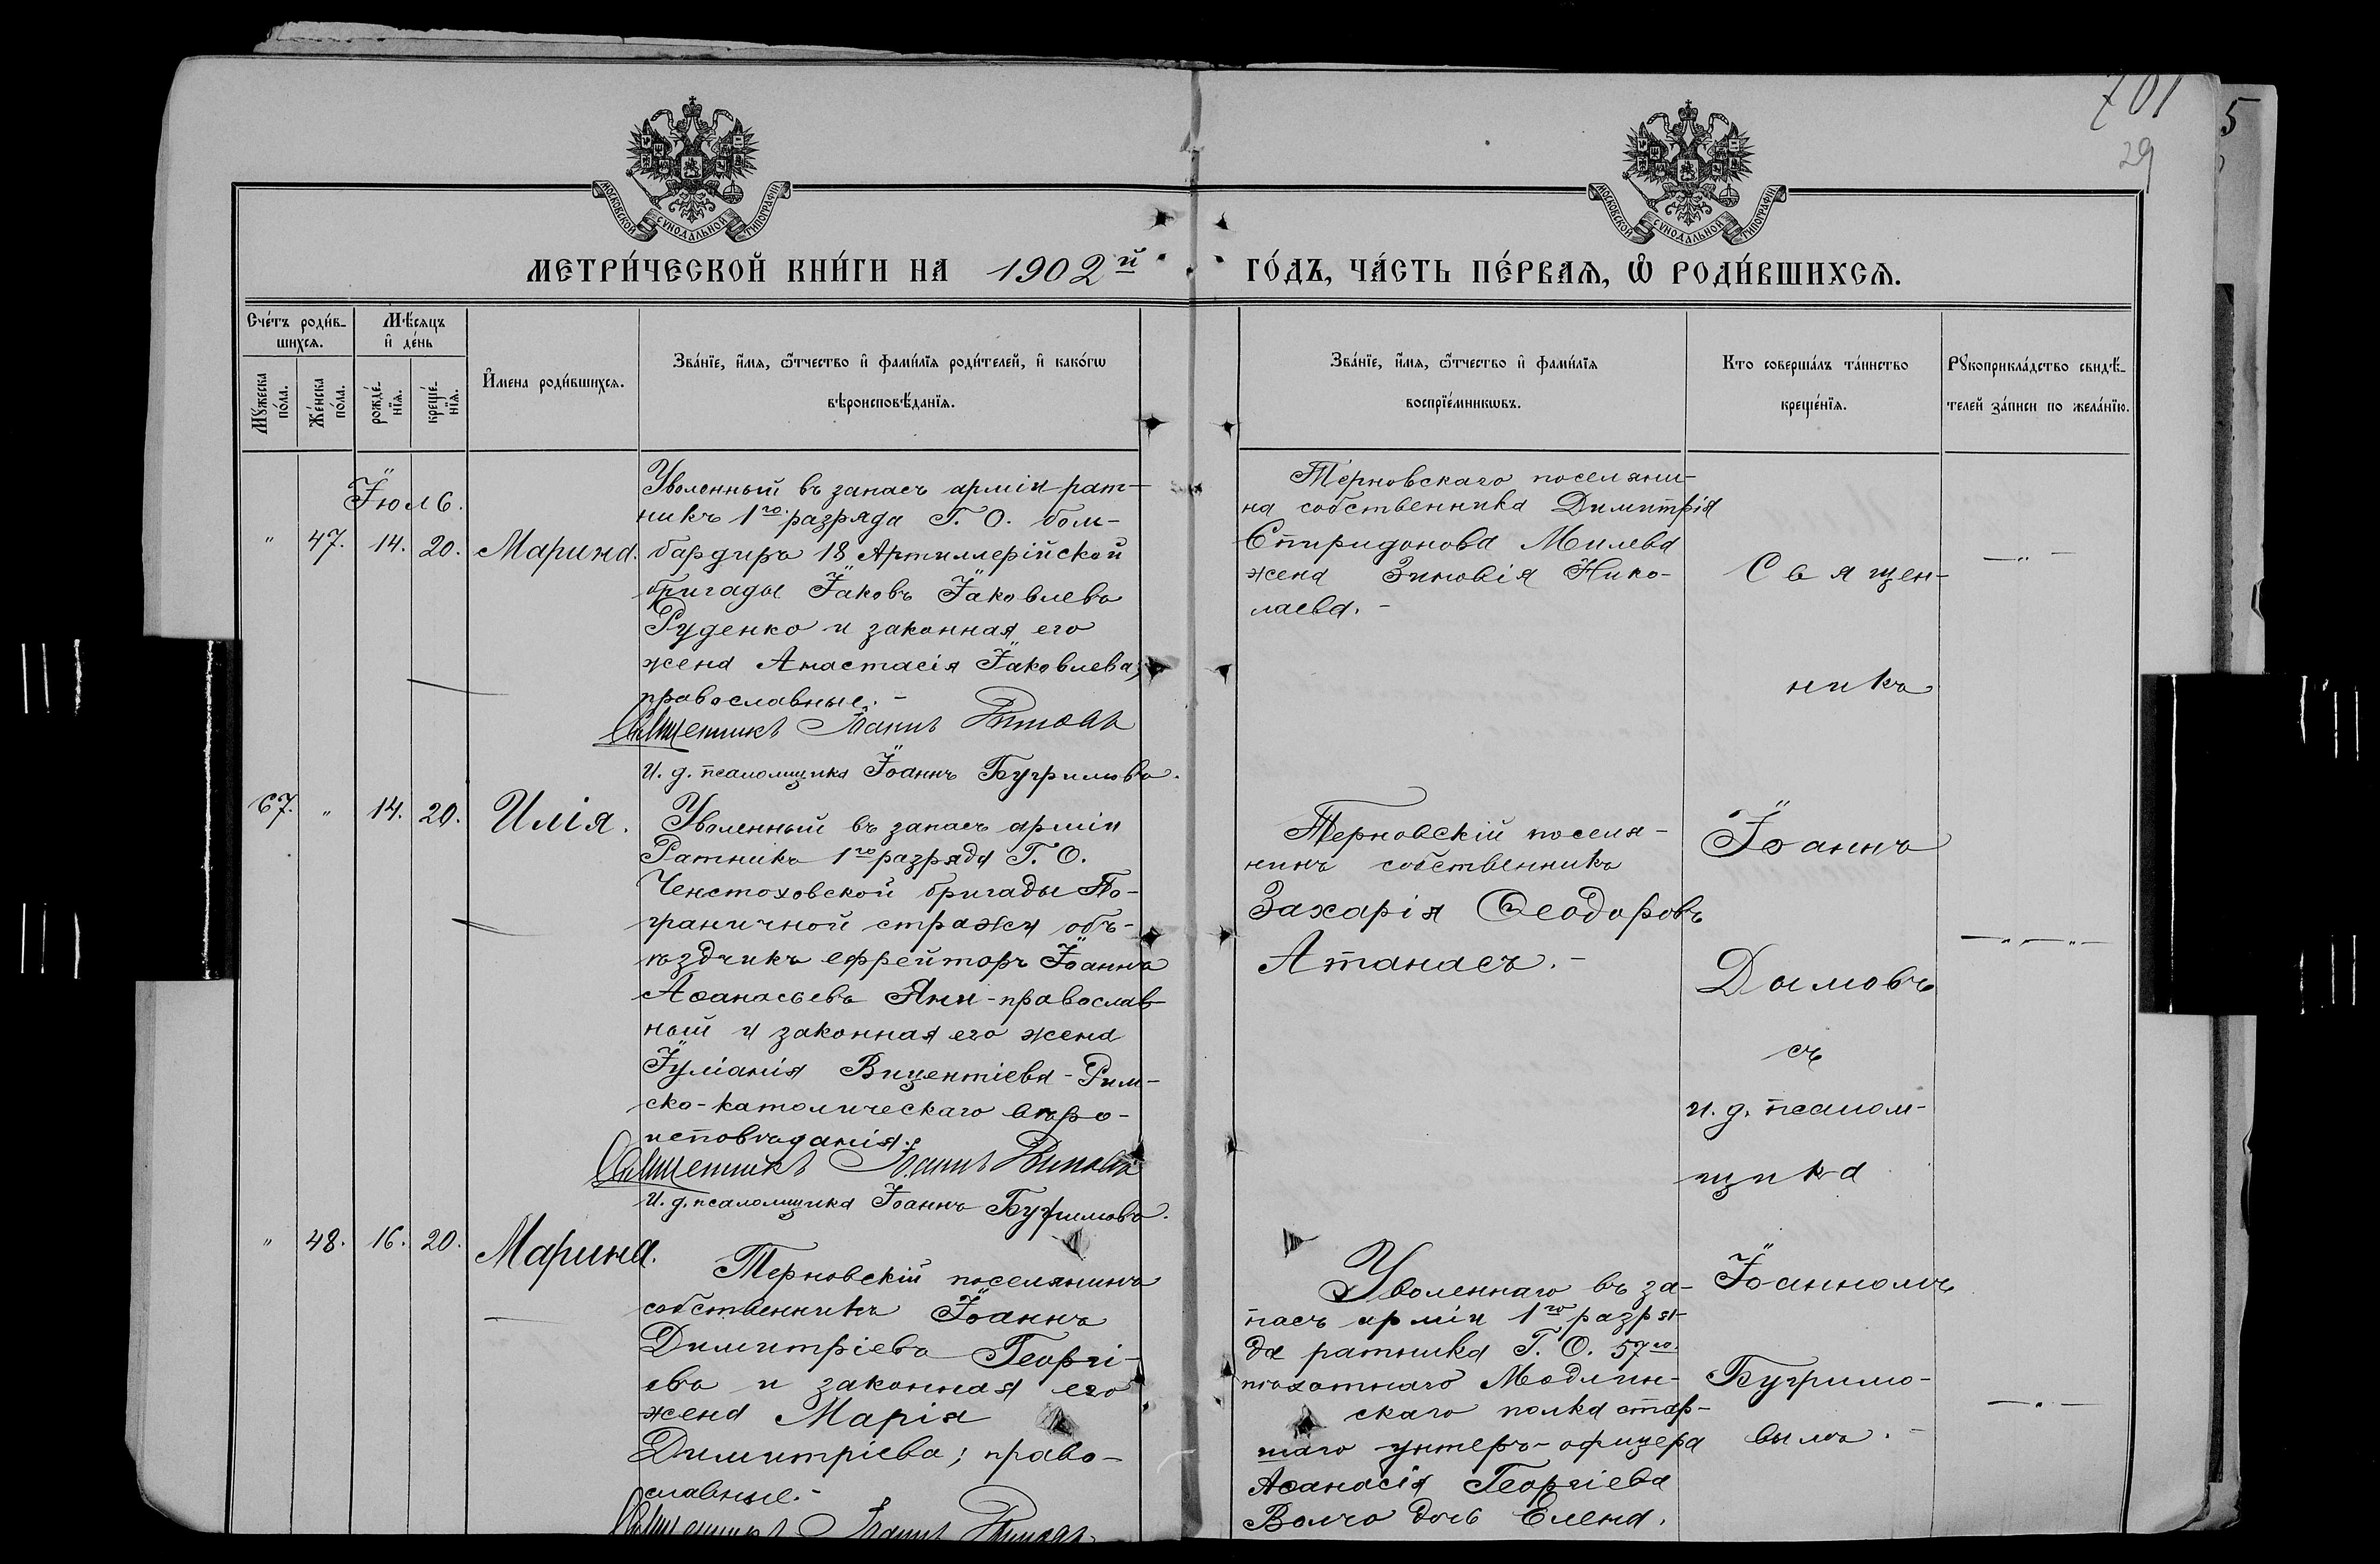 701
5
29
МОСКОВСКОЙ СѴНОДАЛЬНОЙ ТИПОГРАФІИ
МОСКОВСКОЙ СѴНОДАЛЬНОЙ ТИПОГРАФІИ
МЕТРИ́ЧЕСКОЙ КНИ́ГИ НА 1902й
ГО́ДЪ, ЧА́СТЬ ПЕ́РВАѦ, Ѡ РОДИ́ВШИХСѦ.
Сче́тъ роди́в-
шихсѧ.
Мꙋжеска по́ла.
Же́нска по́ла.
Мѣ́сѧцъ
и҆ де́нь
рожде́-
нїѧ.
креще́-
нїѧ.
И҆мена роди́вшихсѧ.
Зва́нїе, и҆́мѧ, ѻ҆́тчество и҆ фами́лїѧ роди́телей, и҆ како́гѡ
вѣроисповѣ́данїѧ.
Зва́нїе, и҆́мѧ, ѻ҆́тчество и҆ фами́лїѧ
воспрїе́мникѡвъ.
Кто соверша́лъ та́инство
креще́нїѧ.
Рꙋкоприкла́дство свидѣ́-
телей за́писи по жела́нїю.
Іюль.
" 47. 14. 20. Марина.
Уволенный въ запасъ арміи рат-
никъ 1го разряда Г. О. бом-
бардиръ 18 Артиллерійской
бригады Іаковъ Іаковлевъ
Руденко и законная его
жена Анастасія Іаковлева,
православные.-
Священникъ Іоаннъ Дымовъ
И. д. псаломщика Іоаннъ Бугримовъ.
Терновскаго поселяни-
на собственника Димитрія
Спиридонова Милева
жена Зиновія Нико-
лаева.-
Священ-
никъ
67. " 14. 20. Илія.
Уволенный въ запасъ арміи
Ратникъ 1го разряда Г. О.
Ченстоховской бригады По-
граничной стражи объ-
ѣздчикъ ефрейторъ Іоаннъ
Аѳанасьевъ Яни-православ-
ный и законная его жена
Іуліанія Вицентіева-Рим-
ско-католическаго вѣро-
исповѣданія.
Священникъ Іоаннъ Дымовъ
И. д. псаломщика Іоаннъ Бугримовъ.
Терновскій поселя-
нинъ собственникъ
Захарія Ѳеодоровъ
Атанасъ.-
Іоаннъ
Дымовъ
съ
и. д. псалом-
щика
" 48. 16. 20. Марина.
Терновскій поселянинъ
собственникъ Іоаннъ
Димитріевъ Георгі-
евъ и законная его
жена Марія
Димитріева; право-
славные.-
Священникъ Іоаннъ Дымовъ
Уволеннаго въ за-
пасъ арміи 1го разря-
да ратника Г. О. 57го
пѣхотнаго Модлин-
скаго полка стар-
шаго унтеръ-офицера
Аѳанасія Георгіева
Волчо дочь Елена.
Іоанномъ
Бугримо-
вымъ.-